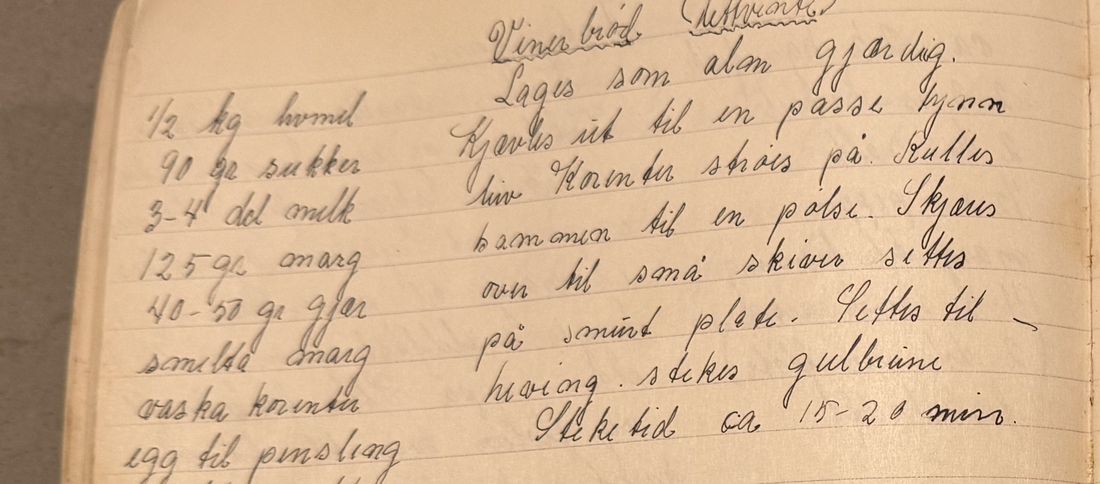 Viner brød (lettvinte)
Lages som alm gjærdeig.
1/2 kg hvmel
90 gr sukker
3-4 del melk
125 gr marg
40-50 gr gjær
smelta marg
vaska korenter
egg til pensling
Kjævles ut til en passe tynn
leiv Korenter strøes på. Rulles
sammen til en pølse. Skjæres
over til små skiver settes
på smurt plate. Settes til
heving. stekes gulbrune
Steketid ca 15-20 min.